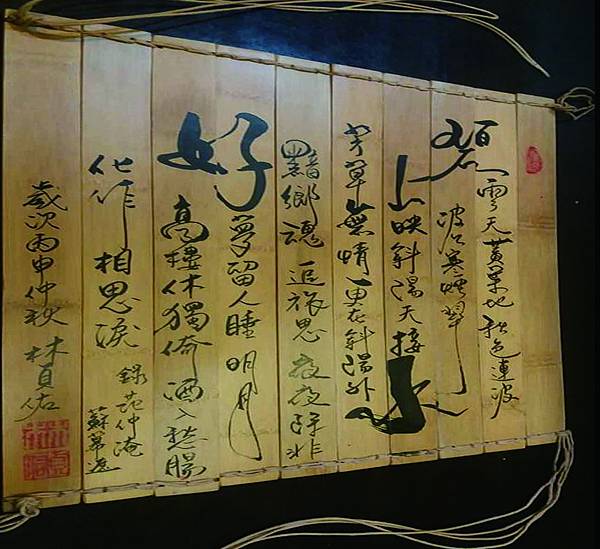 碧雲天黃葉地秋色連波
波上寒煙翠
山映斜陽天接水
芳草無情更在斜陽外
黯鄉魂追旅思夜夜除非
好夢留人睡明月
高樓休獨倚酒入愁腸
化作相思淚 錄范仲淹
蘇幕遮
歲次丙申仲秋 林貞佑